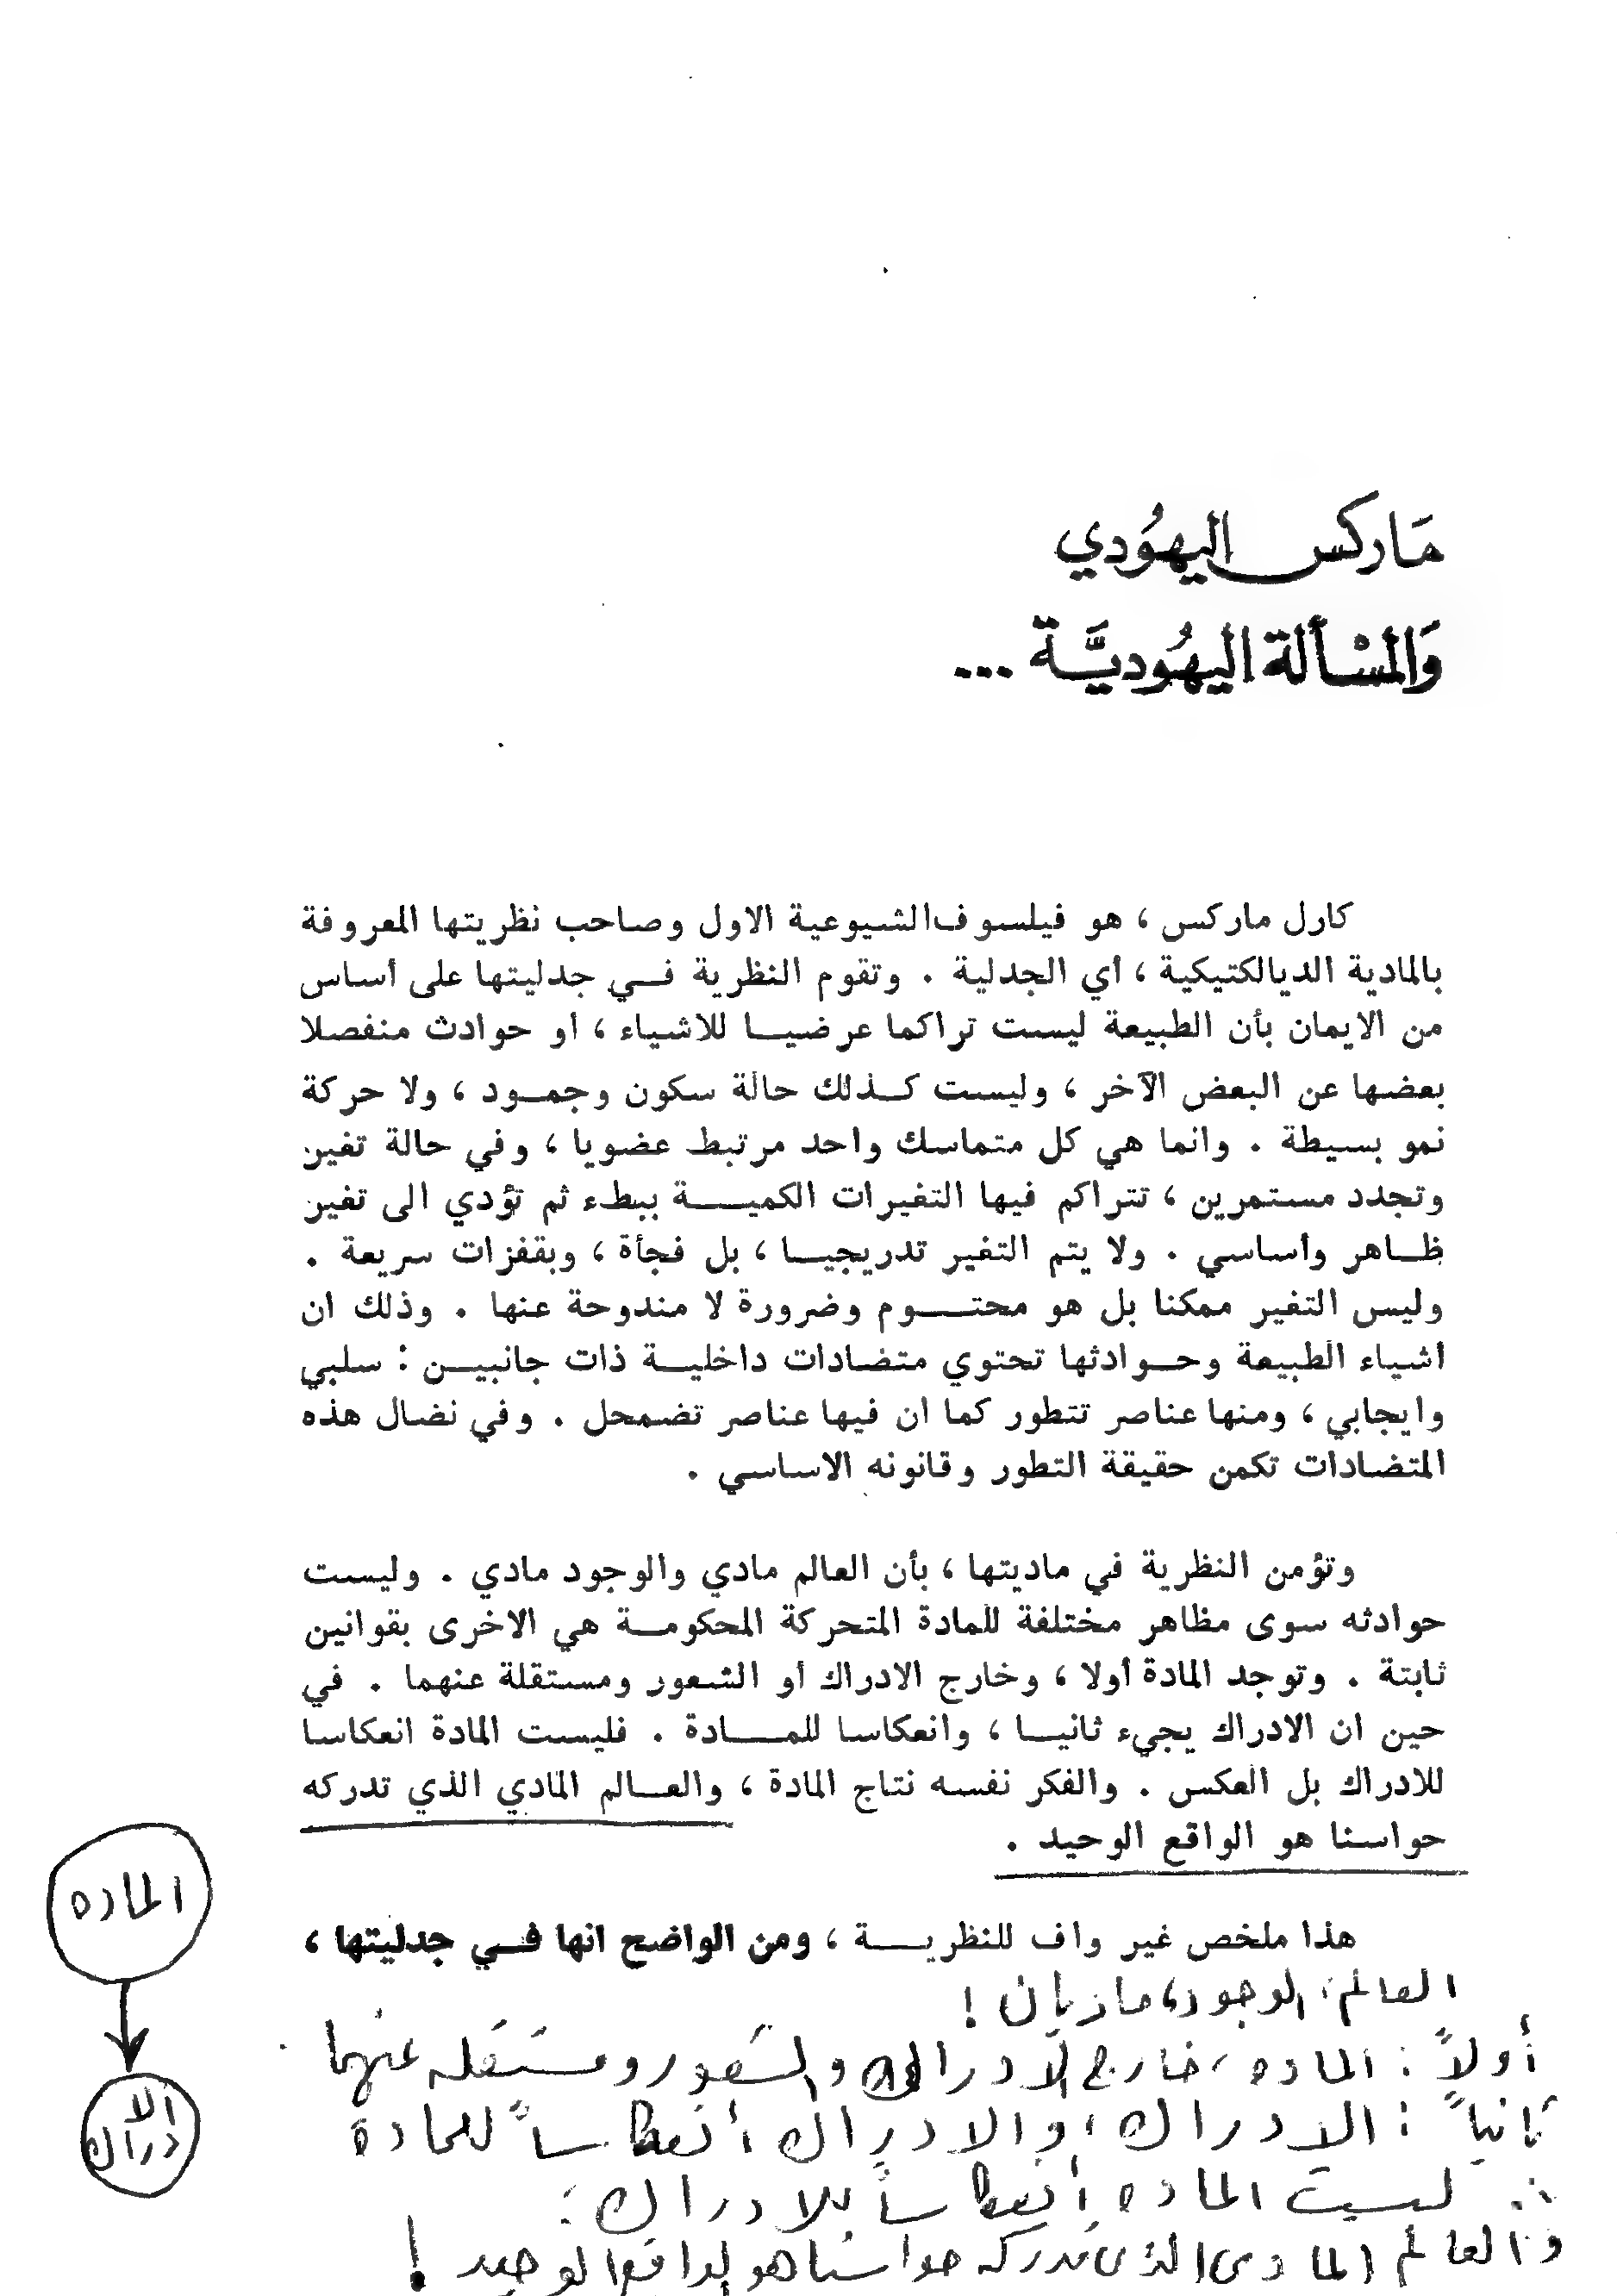 مَاركس اليهوُدي
وَالمسْألة اليهُوديَّة ...
كارل ماركس ، هو فيلسوف الشيوعية الاول وصاحب نظريتها المعروفة
بالمادية الديالكتيكية ، أي الجدلية . وتقوم النظرية في جدليتها على أساس
من الايمان بأن الطبيعة ليست تراكما عرضيا للاشياء ، أو حوادث منفصلا
بعضها عن البعض الآخر ، وليست كذلك حالة سكون وجمود ، ولا حركة
نمو بسيطة . وانما هي كل متماسك واحد مرتبط عضويا ، وفي حالة تغير
وتجدد مستمرين ، تتراكم فيها التغيرات الكمية ببطء ثم تؤدي الى تغير
ظاهر وأساسي . ولا يتم التغير تدريجيا ، بل فجأة ، وبقفزات سريعة .
وليس التغير ممكنا بل هو محتوم وضرورة لا مندوحة عنها . وذلك ان
أشياء الطبيعة وحوادثها تحتوي متضادات داخلية ذات جانبين : سلبي
وايجابي ، ومنها عناصر تتطور كما ان فيها عناصر تضمحل . وفي نضال هذه
المتضادات تكمن حقيقة التطور وقانونه الاساسي .
وتؤمن النظرية في ماديتها ، بأن العالم مادي والوجود مادي . وليست
حوادثه سوى مظاهر مختلفة للمادة المتحركة المحكومة هي الاخرى بقوانين
ثابتة . وتوجد المادة أولا ، وخارج الادراك أو الشعور ومستقلة عنهما . في
حين ان الادراك يجيء ثانيا ، وانعكاسا للمادة . فليست المادة انعكاسا
للادراك بل العكس . والفكر نفسه نتاج المادة ، والعالم المادي الذي تدركه
حواسنا هو الواقع الوحيد .
هذا ملخص غير واف للنظرية ، ومن الواضح انها في جدليتها ،
العالم، الوجود، ماديان !
أولاً : الماده ، خارج الادراك والشعور ومستقله عنهما
ثانياً : الادراك ، والادراك أنعكاساً للمادة
∴ ليست الماده أنعكاساً للادراك ؛
والعالم المادى الذى تدركه حواسنا هو الواقع الوحيد !
الماده
الا
دراك